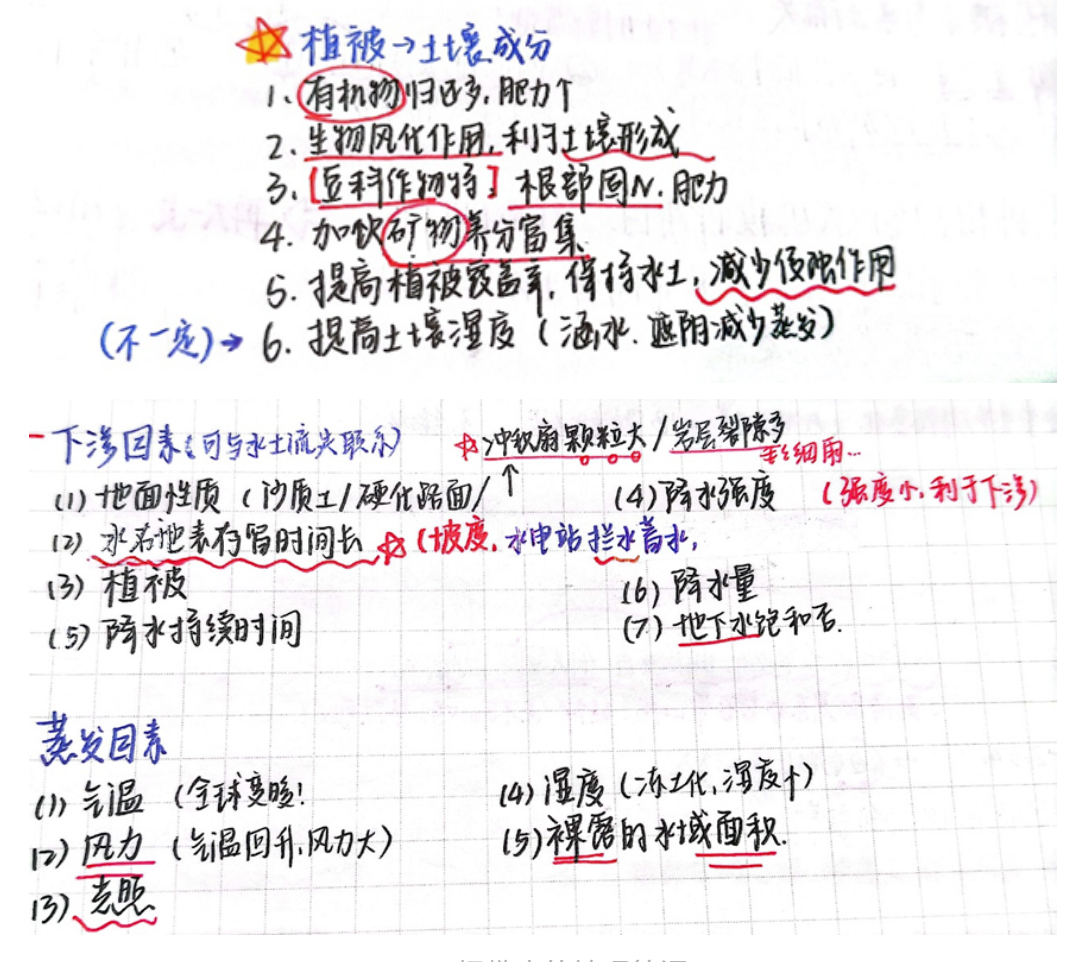 植被→土壤成分
1、有机物归还多,肥力↑
2、生物风化作用,利于土壤形成
3、[豆科作物特] 根部固N,肥力
4、加快矿物养分富集
5、提高植被覆盖率,保持水土,减少侵蚀作用
(不一定)→ 6、提高土壤湿度(涵水、遮阴减少蒸发)
下渗因素(可与水土流失联系)
冲积扇颗粒大/岩层裂隙多
细雨…
(1) 地面性质(沙质土/硬化路面/↑ (4)降水强度 (强度小,利于下渗)
(2) 水在地表存留时间长 (坡度,水电站拦水蓄水,
(3) 植被 (6) 降水量
(5) 降水持续时间 (7) 地下水饱和否.
蒸发因素
(1) 气温 (全球变暖! (4) 湿度(冻土化,湿度↑)
(2) 风力 (气温回升,风力大) (5) 裸露的水域面积.
(3)、光照